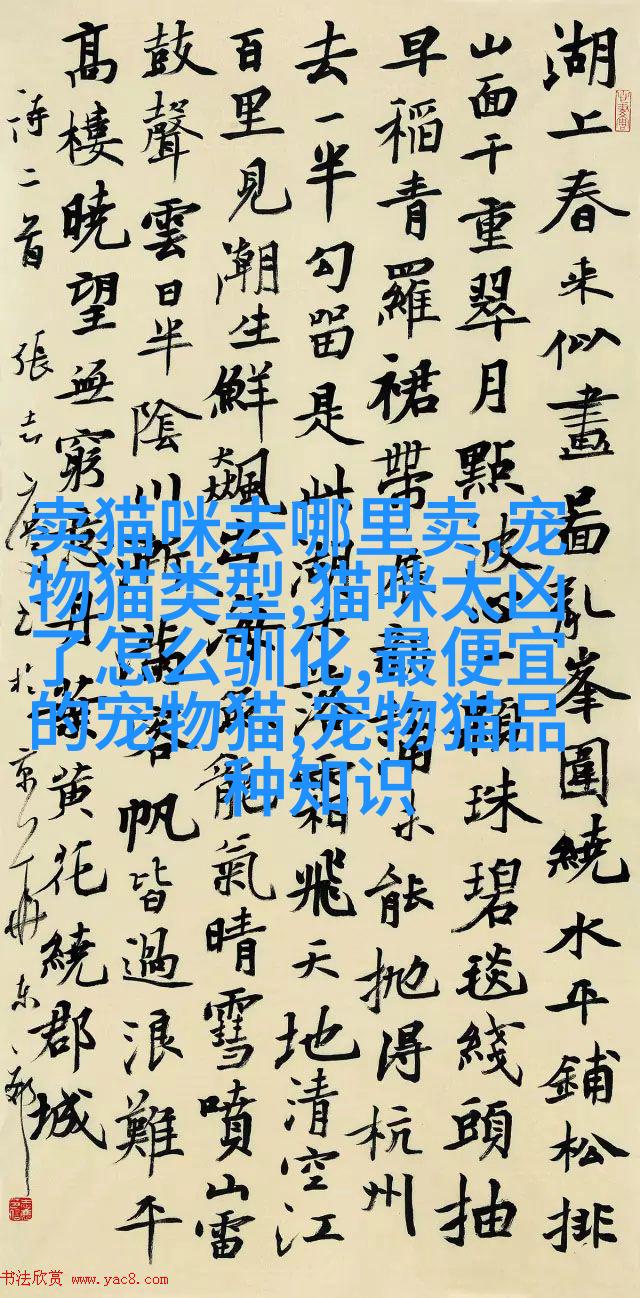 湖上春来似畫啚乱峯圍繞水平鋪松排
山面千重翠月點波心一顆珠碧毯綫頭抽
早稻青羅裙帶展新蒲未能抛得杭州
去一半勾留是此湖木落霜飛天地清空江
百里見潮生鮮飈出海魚龍氣晴雪噴山雷
鼓聲雲日半陰川漸滿客帆皆過浪難平
高樓曉望無窮意丹葉黄花繞郡城
詩二首 張志 於京
卖猫咪去哪里卖,宠
物猫类型,猫咪太凶
了怎么驯化,最便宜
的宠物猫,宠物猫品
种知识
书法欣赏 www.yac8.com